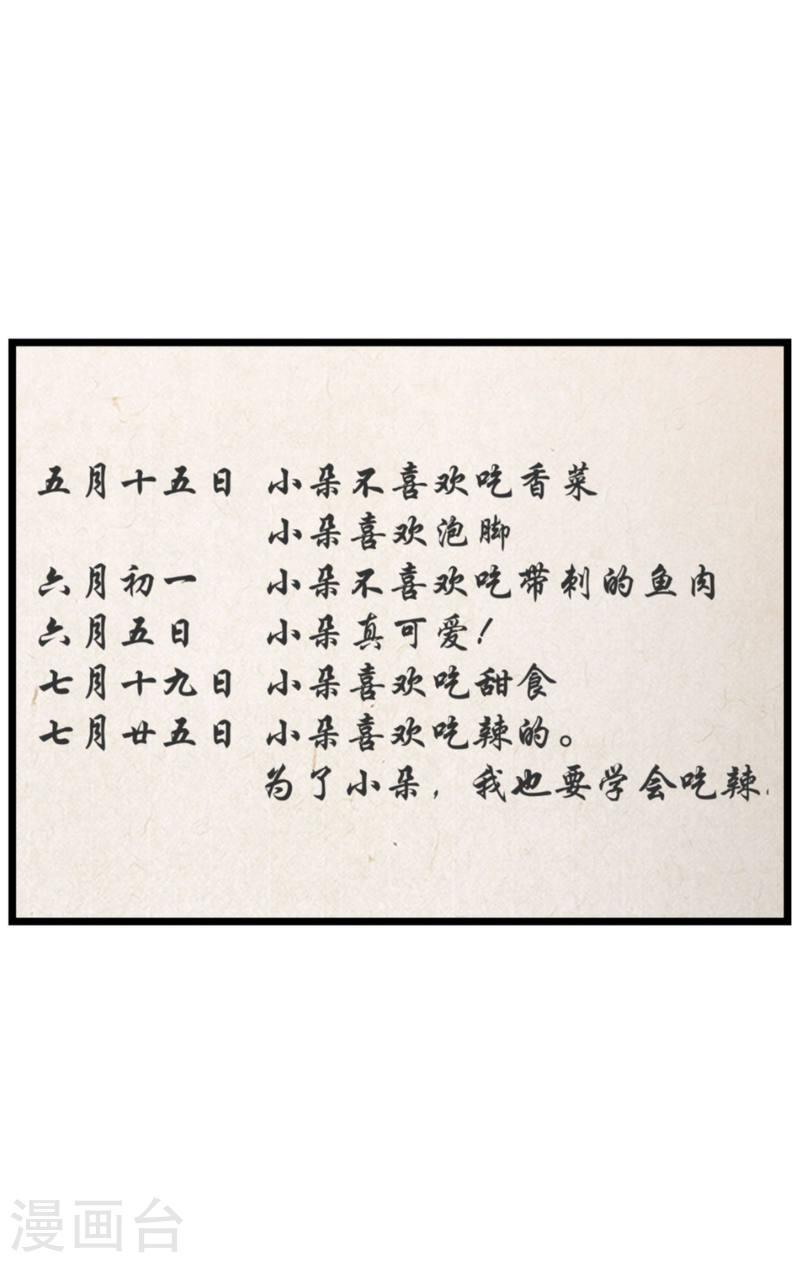 五月十五日 小朵不喜欢吃香菜
小朵喜欢泡脚
六月初一 小朵不喜欢吃带刺的鱼肉
六月五日 小朵真可爱!
七月十九日 小朵喜欢吃甜食
七月廿五日 小朵喜欢吃辣的。
为了小朵，我也要学会吃辣.
漫画台